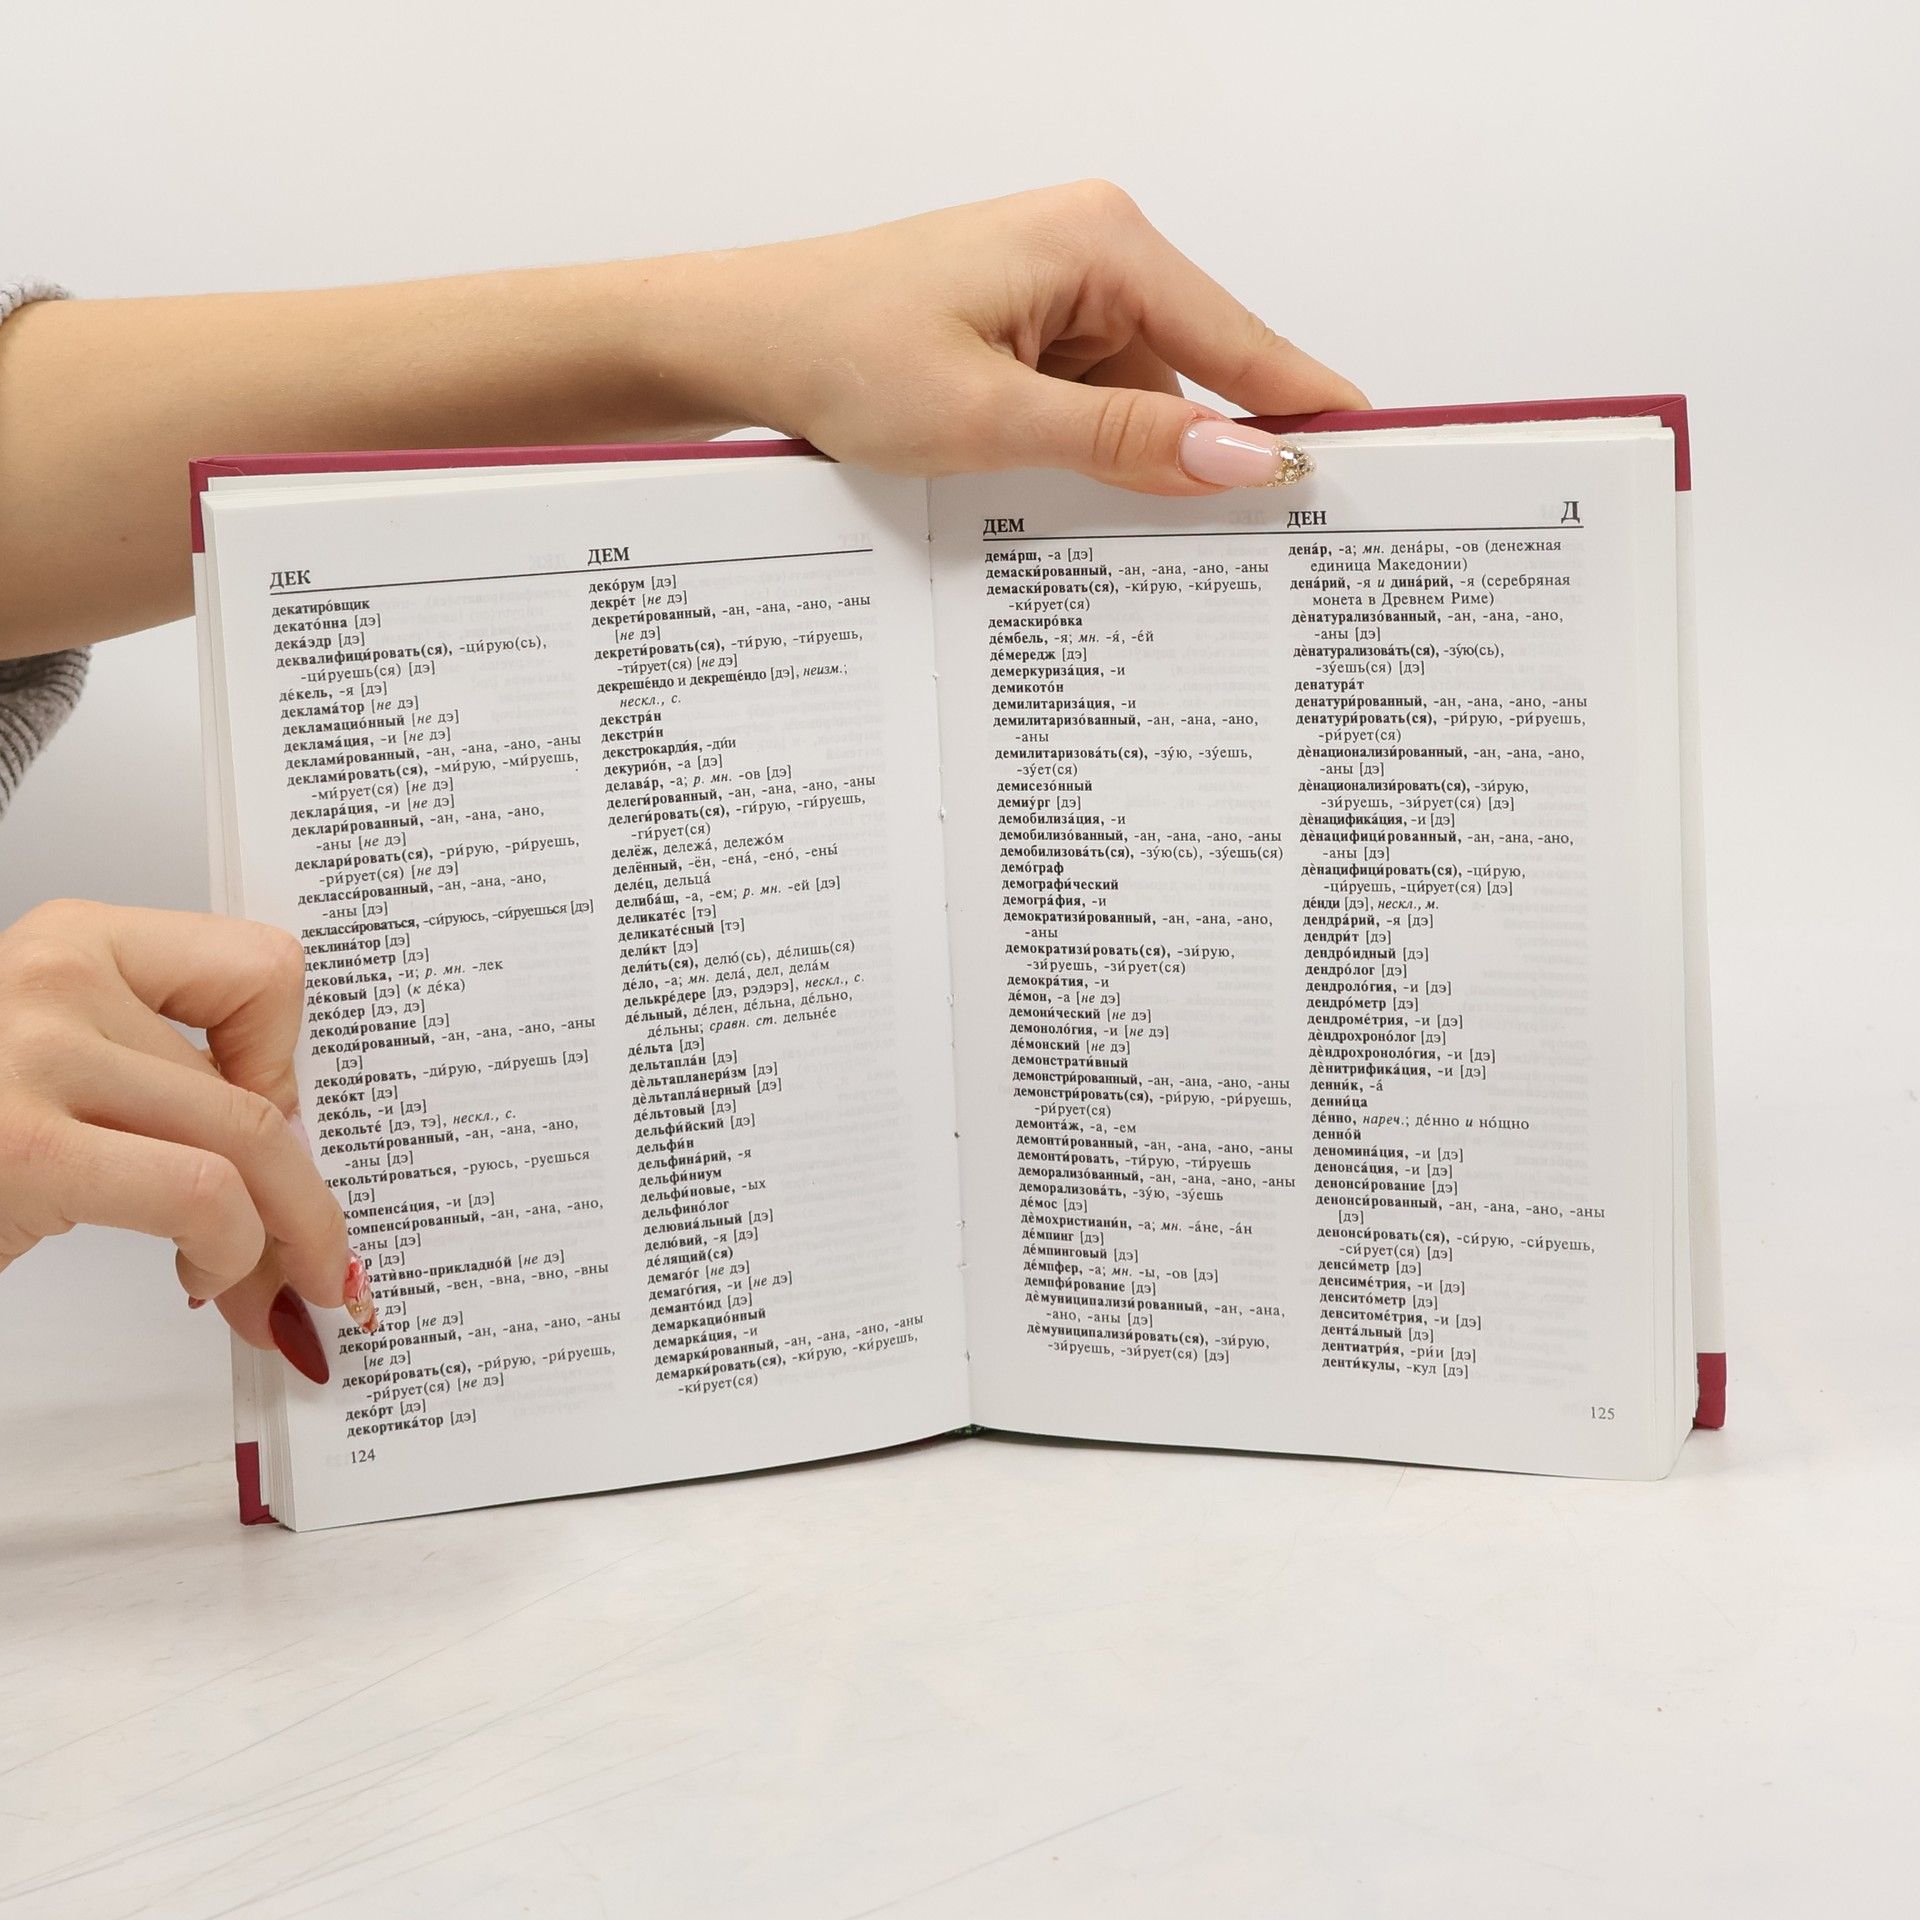 ДЕК
ДЕМ
декатиро́вщик
декато́нна [дэ]
дека́эдр [дэ]
деквалифици́ровать(ся), -ци́рую(сь),
-ци́руешь(ся) [дэ]
де́кель, -я [дэ]
деклама́тор [не дэ]
декламацио́нный [не дэ]
деклама́ция, -и [не дэ]
деклами́рованный, -ан, -ана, -ано, -аны
деклами́ровать(ся), -ми́рую, -ми́руешь,
-ми́рует(ся) [не дэ]
деклара́ция, -и [не дэ]
деклари́рованный, -ан, -ана, -ано,
-аны [не дэ]
деклари́ровать(ся), -ри́рую, -ри́руешь,
-ри́рует(ся) [не дэ]
деклассированный, -ан, -ана, -ано,
-аны [дэ]
деклассироваться, -си́руюсь, -си́руешься [дэ]
деклина́тор [дэ]
деклино́метр [дэ]
декови́лька, -и; р. мн. -лек
де́ковый [дэ] (к де́ка)
деко́дер [дэ, дэ]
декоди́рование [дэ]
декоди́рованный, -ан, -ана, -ано, -аны
[дэ]
декоди́ровать, -ди́рую, -ди́руешь [дэ]
деко́кт [дэ]
деко́ль, -и [дэ]
декольте́ [дэ, тэ], нескл., с.
декольти́рованный, -ан, -ана, -ано,
-аны [дэ]
декольти́роваться, -руюсь, -руешься
[дэ]
компенса́ция, -и [дэ]
компенси́рованный, -ан, -ана, -ано,
-аны [дэ]
р [дэ]
рати́вно-прикладно́й [не дэ]
рати́вный, -вен, -вна, -вно, -вны
е дэ]
декора́тор [не дэ]
декори́рованный, -ан, -ана, -ано, -аны
[не дэ]
декори́ровать(ся), -ри́рую, -ри́руешь,
-ри́рует(ся) [не дэ]
деко́рт [дэ]
декортика́тор [дэ]
деко́рум [дэ]
декре́т [не дэ]
декрети́рованный, -ан, -ана, -ано, -аны
[не дэ]
декрети́ровать(ся), -ти́рую, -ти́руешь,
-ти́рует(ся) [не дэ]
декреше́ндо и декреще́ндо [дэ], неизм.;
нескл., с.
декстра́н
декстри́н
декстрокарди́я, -ди́и
декурио́н, -а [дэ]
делава́р, -а; р. мн. -ов [дэ]
делеги́рованный, -ан, -ана, -ано, -аны
делеги́ровать(ся), -ги́рую, -ги́руешь,
-ги́рует(ся)
делёж, дележа́, дележо́м
делённый, -ён, -ена́, -ено́, -ены́
деле́ц, дельца́
делиба́ш, -а, -ем; р. мн. -ей [дэ]
деликате́с [тэ]
деликате́сный [тэ]
дели́кт [дэ]
дели́ть(ся), делю́(сь), де́лишь(ся)
де́ло, -а; мн. дела́, дел, дела́м
делькре́дере [дэ, рэдэрэ], нескл., с.
де́льный, де́лен, де́льна, де́льно,
де́льны; сравн. ст. дельне́е
де́льта [дэ]
дельтапла́н [дэ]
дѐльтапланери́зм [дэ]
дѐльтапла́нерный [дэ]
де́льтовый [дэ]
дельфи́йский [дэ]
дельфи́н
дельфина́рий, -я
дельфи́ниум
дельфи́новые, -ых
дельфино́лог
делювиа́льный [дэ]
делю́вий, -я [дэ]
де́лящий(ся)
демаго́г [не дэ]
демаго́гия, -и [не дэ]
деманто́ид [дэ]
демаркацио́нный
демарка́ция, -и
демарки́рованный, -ан, -ана, -ано, -аны
демарки́ровать(ся), -ки́рую, -ки́руешь,
-ки́рует(ся)
124
ДЕМ
ДЕН
Д
дема́рш, -а [дэ]
демаски́рованный, -ан, -ана, -ано, -аны
демаски́ровать(ся), -ки́рую, -ки́руешь,
-ки́рует(ся)
демаскиро́вка
де́мбель, -я; мн. -я́, -е́й
де́мередж [дэ]
демеркуриза́ция, -и
демикото́н
демилитариза́ция, -и
демилитаризо́ванный, -ан, -ана, -ано,
-аны
демилитаризова́ть(ся), -зу́ю, -зу́ешь,
-зу́ет(ся)
демисезо́нный
демиу́рг [дэ]
демобилиза́ция, -и
демобилизо́ванный, -ан, -ана, -ано, -аны
демобилизова́ть(ся), -зу́ю(сь), -зу́ешь(ся)
демо́граф
демографи́ческий
демогра́фия, -и
демократизи́рованный, -ан, -ана, -ано,
-аны
демократизи́ровать(ся), -зи́рую,
-зи́руешь, -зи́рует(ся)
демокра́тия, -и
де́мон, -а [не дэ]
демони́ческий [не дэ]
демоноло́гия, -и [не дэ]
де́монский [не дэ]
демонстрати́вный
демонстри́рованный, -ан, -ана, -ано, -аны
демонстри́ровать(ся), -ри́рую, -ри́руешь,
-ри́рует(ся)
демонта́ж, -а, -ем
демонти́рованный, -ан, -ана, -ано, -аны
демонти́ровать, -ти́рую, -ти́руешь
деморализо́ванный, -ан, -ана, -ано, -аны
деморализова́ть, -зу́ю, -зу́ешь
де́мос [дэ]
дѐмохристиани́н, -а; мн. -а́не, -а́н
де́мпинг [дэ]
де́мпинговый [дэ]
де́мпфер, -а; мн. -ы, -ов [дэ]
демпфи́рование [дэ]
дѐмуниципализи́рованный, -ан, -ана,
-ано, -аны [дэ]
дѐмуниципализи́ровать(ся), -зи́рую,
-зи́руешь, -зи́рует(ся) [дэ]
дена́р, -а; мн. дена́ры, -ов (денежная
единица Македонии)
дена́рий, -я и дина́рий, -я (серебряная
монета в Древнем Риме)
дѐнатурализо́ванный, -ан, -ана, -ано,
-аны [дэ]
дѐнатурализова́ть(ся), -зу́ю(сь),
-зу́ешь(ся) [дэ]
денатура́т
денатури́рованный, -ан, -ана, -ано, -аны
денатури́ровать(ся), -ри́рую, -ри́руешь,
-ри́рует(ся)
дѐнационализи́рованный, -ан, -ана, -ано,
-аны [дэ]
дѐнационализи́ровать(ся), -зи́рую,
-зи́руешь, -зи́рует(ся) [дэ]
дѐнацифика́ция, -и [дэ]
дѐнацифици́рованный, -ан, -ана, -ано,
-аны [дэ]
дѐнацифици́ровать(ся), -ци́рую,
-ци́руешь, -ци́рует(ся) [дэ]
де́нди [дэ], нескл., м.
дендра́рий, -я [дэ]
дендри́т [дэ]
дендро́идный [дэ]
дендро́лог [дэ]
дендроло́гия, -и [дэ]
дендро́метр [дэ]
дендроме́трия, -и [дэ]
дѐндрохроно́лог [дэ]
дѐндрохроноло́гия, -и [дэ]
дѐнитрифика́ция, -и [дэ]
денни́к, -а́
денни́ца
де́нно, нареч.; де́нно и но́щно
денно́й
деномина́ция, -и [дэ]
денонса́ция, -и [дэ]
денонси́рование [дэ]
денонси́рованный, -ан, -ана, -ано, -аны
[дэ]
денонси́ровать(ся), -си́рую, -си́руешь,
-си́рует(ся) [дэ]
денси́метр [дэ]
денсиме́трия, -и [дэ]
денсито́метр [дэ]
денситоме́трия, -и [дэ]
дента́льный [дэ]
дентиатри́я, -ри́и [дэ]
денти́кулы, -кул [дэ]
125